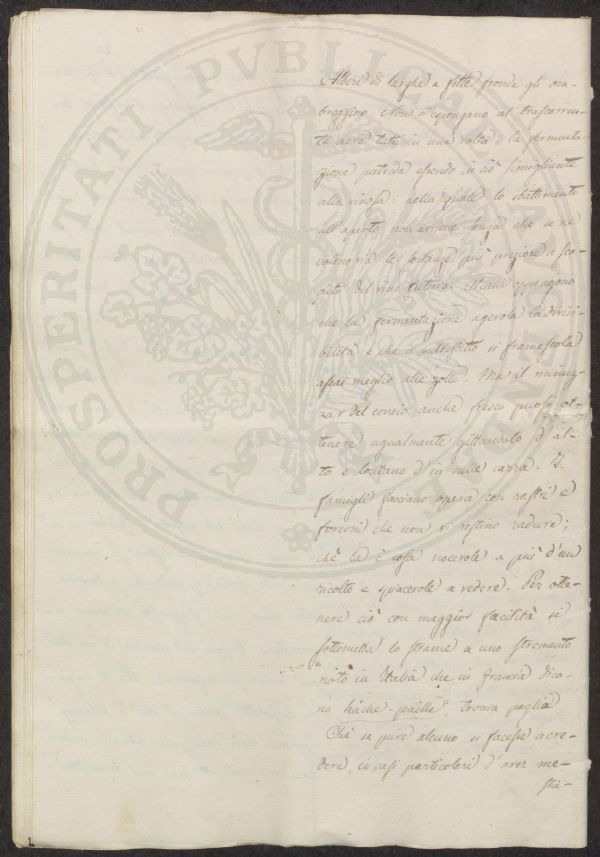 Alberi di larghe e fitte fronde gli om-
breggino. Non si espongano al trascorren-
te aere tutti in una volta: la fermenta-
zione putrida essendo in ciò simigliante
alla vinosa: nella quale lo sbattimento
all'aperto non avviene senza che se ne
volino via le sostanze più preziose a sca-
pito del vino futuro. Alcuni oppongono
che la fermentazione agevola la divisi-
bilità e che il putrefatto si framescola
assai meglio alle zolle. Ma il minuz-
zar del concio anche fresco puossi ot-
tenere ugualmente gittandolo d'al-
to e lontano d'in sulle carra. I
famigli facciano opera con raffii e
forconi che non vi restino radure;
chè la è cosa nocevole a più d'un
ricolto e spiacevole a vedere. Per otte-
nere ciò con maggior facilità si
sottometta lo strame a uno stromento
noto in Italia che in Francia dico-
no hache-paille, tronca paglia
Chè se pure alcuno si facesse a cre-
dere, in casi particolari d'aver me-
stie-
PROSPERITATI PVBLICAE